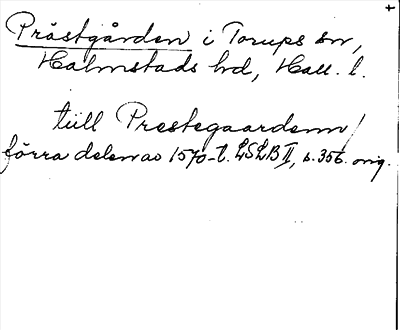 Prästgården i Torups sn,
Halmstads hd, Hall. l.
till Prestegaardenn/
förra delen av 1570-t. LSLB II, s. 356. orig.